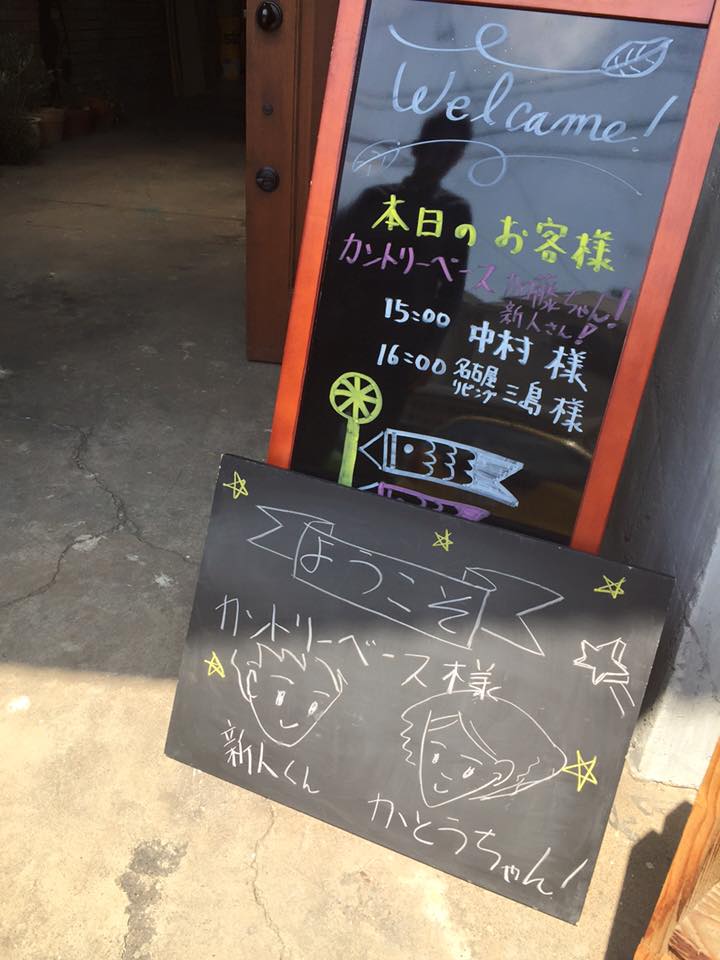 Welcame!
本日のお客様
カントリーベース 加藤ちゃん!
新人さん!
15:00 中村 様
16:00 名古屋リビング 三島 様
ようこそ
カントリーベース様
新人くん
かとうちゃん!